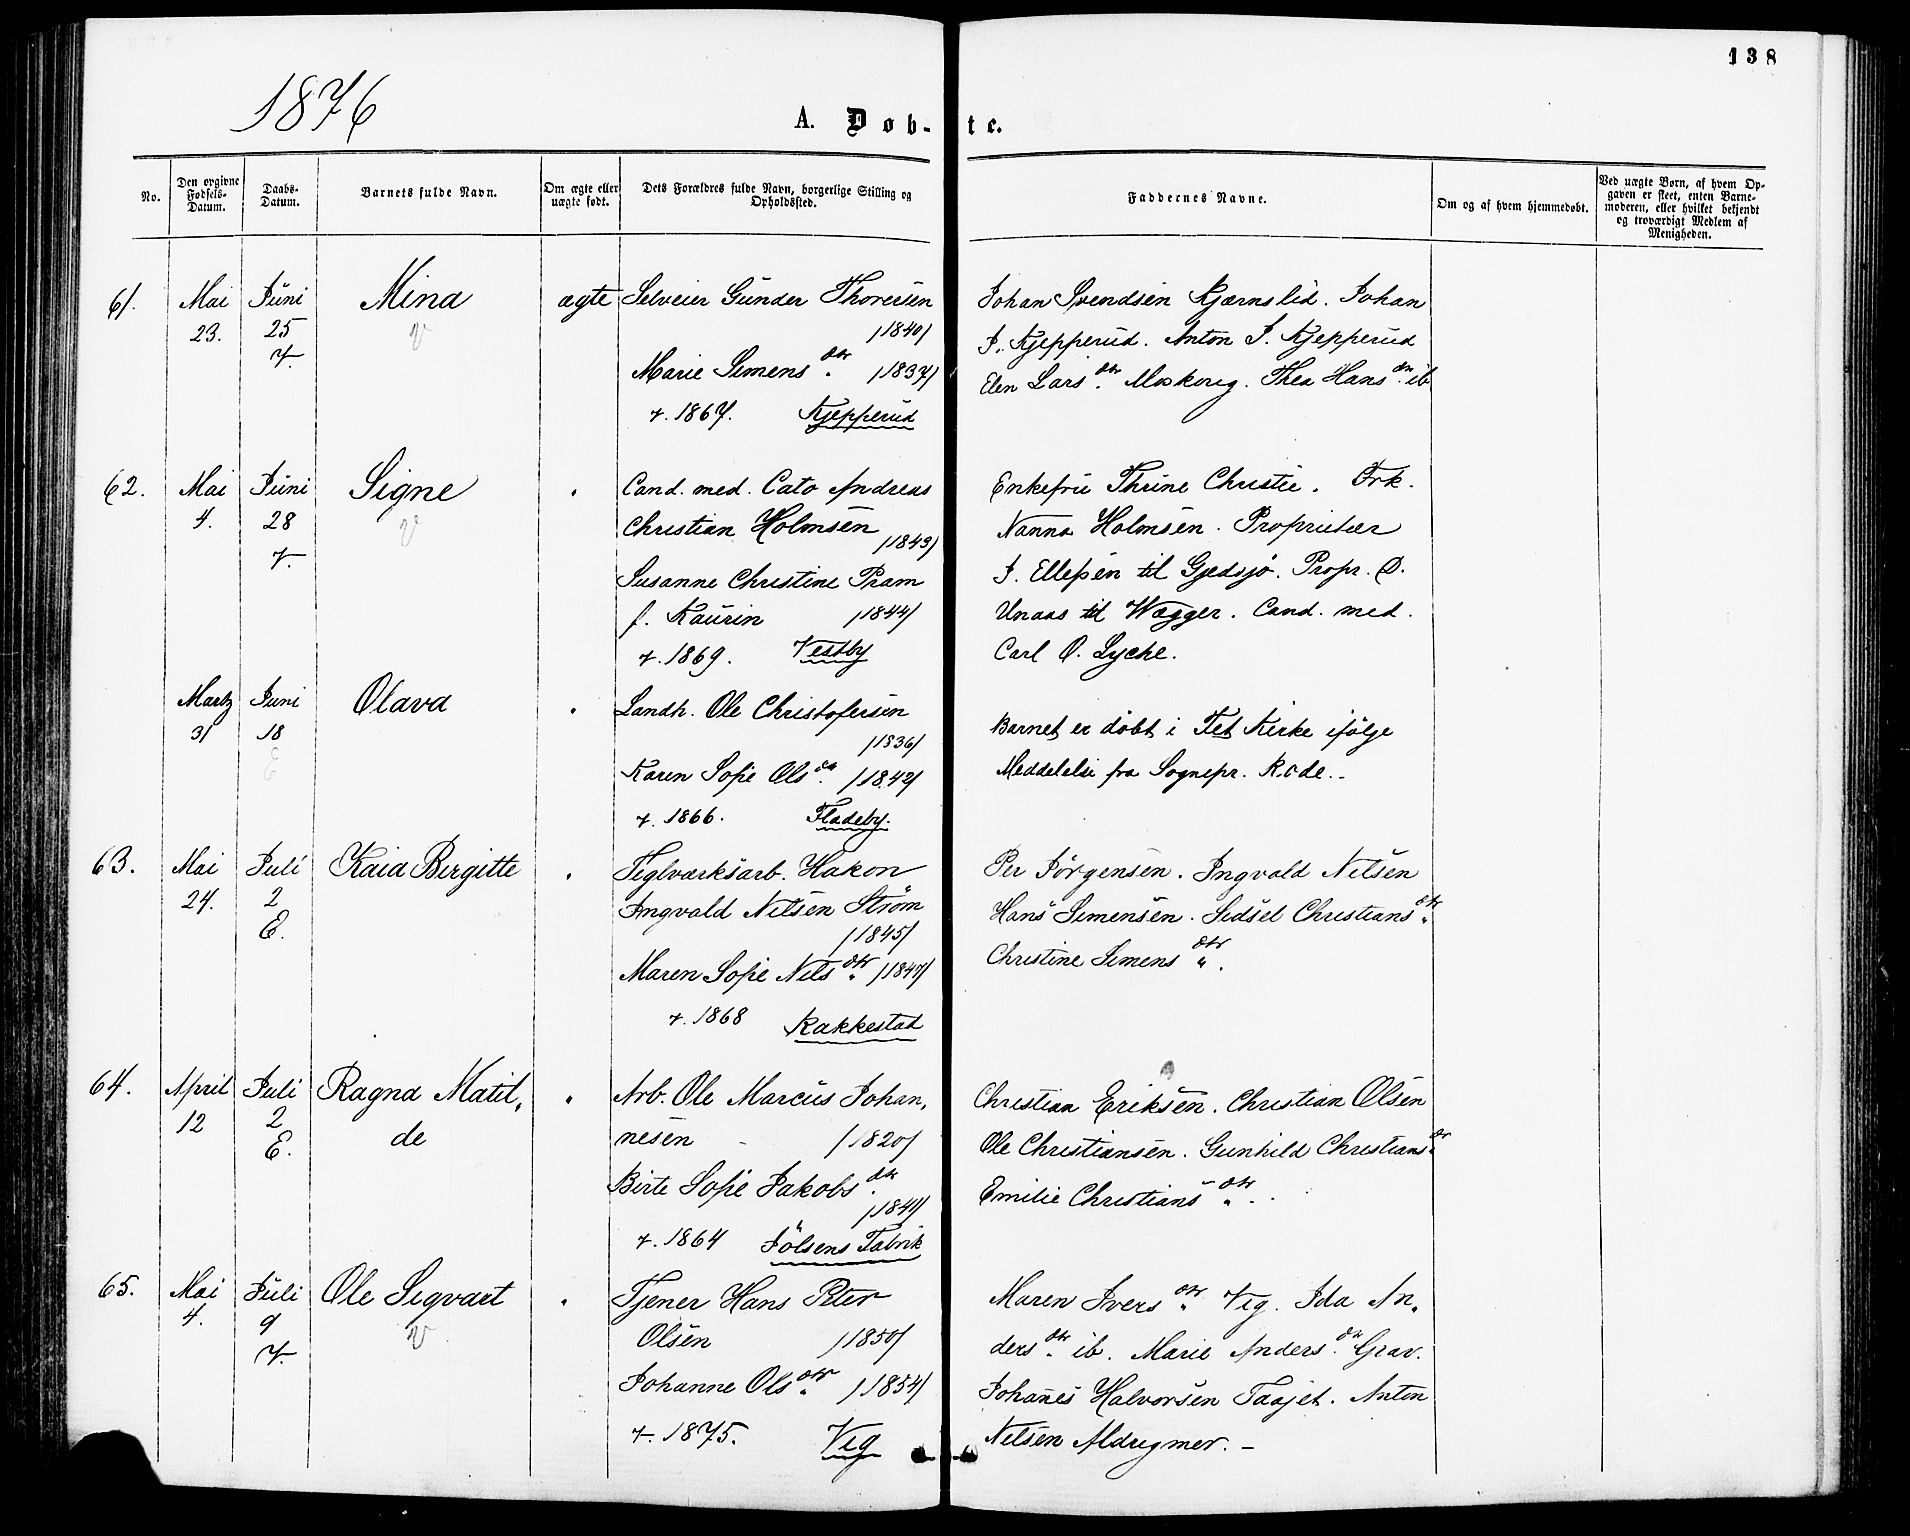 138
1876
A. Døb-te.
No.
Den opgivne Fødsels-Datum.
Daabs-Datum.
Barnets fulde Navn.
Om ægte eller uægte født.
Dets Forældres fulde Navn, borgerlige Stilling og Opholdssted.
Faddernes Navne.
Om og af hvem hjemmedøbt.
Ved uægte Børn, af hvem Opgaven er skeet, enten Barnemoderen, eller hvilket bekjendt og troværdigt Medlem af Menigheden.
61. Mai 23. Juni 25 V. Mina ægte
Selveier Gunder Thoresen
/1840/
Marie Simens dtr. /1837/
v. 1867. Kjepperud
Johan Svendsen Kjærnslid. Johan
J. Kjepperud. Anton J. Kjepperud
Elen Lars dtr. Thea Hans dtr. ib
62. Mai 4. Juni 28 V. Signe "
Cand. med. Cato Andreas
Christian Holmsen
/1843/
Susanne Christine Pram
f. Kaurin /1844/
v. 1869. Vestby
Enkefru Thrine Christie. Frk.
Nanna Holmsen. Proprietær
J. Ellefsen til Gjedsjø. Propr. O.
Unaas til Wagger. Cand. med.
Carl O. Lyche.
Martz 31 Juni 18 E Olava "
Landh. Ole Christofersen
/1836/
Karen Sofie Ols dtr. /1842/
v. 1866. Fladeby.
Barnet er døbt i Fet Kirke ifølge
Meddelelse fra Sognepr. Rode. -
63. Mai 24. Juli 2 E. Kaia Birgitte "
Teglværksarb. Hakon
Ingvald Nilsen Strøm
/1845/
Maren Sofie Nils dtr. /1847/
v. 1868 Rakkestad
Per Jørgensen. Ingvald Nilsen
Hans Simensen. Sidsel Christians dtr.
Christine Simens dtr.
64. April 12 Juli 2 E. Ragna Matil- "
de
Arb. Ole Marcus Johan-
nesen - /1820/
Birte Sofie Jakobs dtr.
v. 1864 Jølsens Fabrik
Christian Eriksen. Christian Olsen
Ole Christiansen. Gunhild Christians dtr.
Emilie Christians dtr.
65. Mai 4. Juli 9 V. Ole Sigvart "
Tjener Hans Peter
Olsen /1850/
Johanne Ols dtr. /1854/
v. 1875. Vig
Maren Ivers dtr. Vig. Ida An-
ders dtr. ib. Marie Anders dtr. Grav.
Johanes Halvorsen Taajet. Anton
Nilsen Aldregmer. -